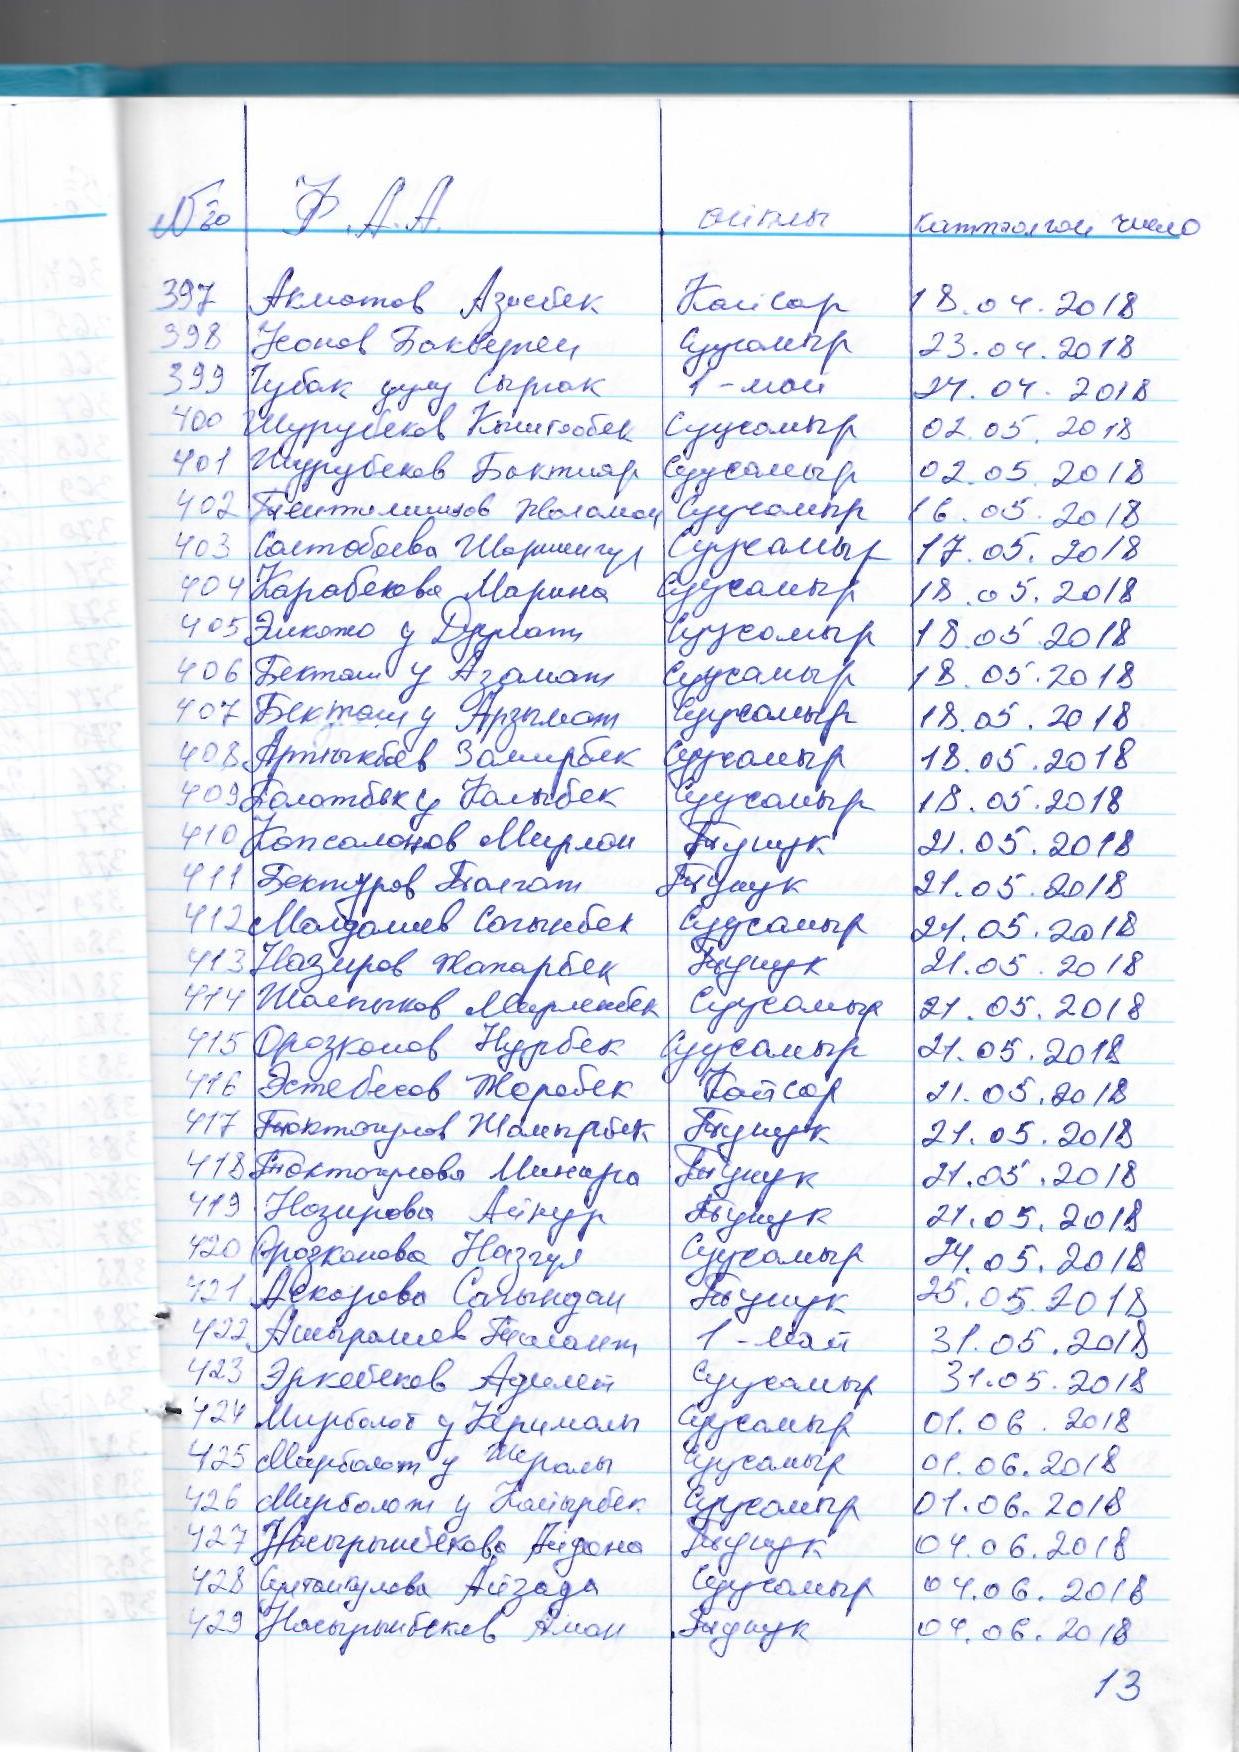 № Ф.А.А. айылы катталган число
397 Акматов Азисбек Кайсар 18.04.2018
398 Усонов Бакберген Суусамыр 23.04.2018
399 Чубак уулу Сыргак 1-май 24.04.2018
400 Шурубеков Кыштообек Суусамыр 02.05.2018
401 Шурубеков Бактияр Суусамыр 02.05.2018
402 Тентимишов Жоломон Суусамыр 16.05.2018
403 Солтобаева Шаршенгул Суусамыр 17.05.2018
404 Карабекова Марина Суусамыр 18.05.2018
405 Элкожо у Дуулат Суусамыр 18.05.2018
406 Бекташ у Азамат Суусамыр 18.05.2018
407 Бекташ у Арзымат Суусамыр 18.05.2018
408 Артыкбаев Замирбек Суусамыр 18.05.2018
409 Болотбек у Калыбек Суусамыр 18.05.2018
410 Капсаланов Мирлан Тунук 21.05.2018
411 Бектуров Талгат Тунук 21.05.2018
412 Молдалиев Сагынбек Суусамыр 21.05.2018
413 Назиров Жапарбек Тунук 21.05.2018
414 Жалпыков Мирленбек Суусамыр 21.05.2018
415 Орозконов Нурбек Суусамыр 21.05.2018
416 Эстебесов Жоробек Кайсар 21.05.2018
417 Токтогулов Жамырбек Тунук 21.05.2018
418 Токтогулова Минара Тунук 21.05.2018
419 Назирова Айнур Тунук 21.05.2018
420 Орозконова Назгул Суусамыр 24.05.2018
421 Аскарова Сагындан Тунук 25.05.2018
422 Ашыралиев Талант 1-май 31.05.2018
423 Эркебеков Адилет Суусамыр 31.05.2018
424 Мирболот у Нурмалы Суусамыр 01.06.2018
425 Мирболот у Шералы Суусамыр 01.06.2018
426 Мирболот у Кайырбек Суусамыр 01.06.2018
427 Насырымбекова Айдана Тунук 04.06.2018
428 Султангулова Айзада Суусамыр 04.06.2018
429 Насырымбеков Аман Тунук 04.06.2018
13